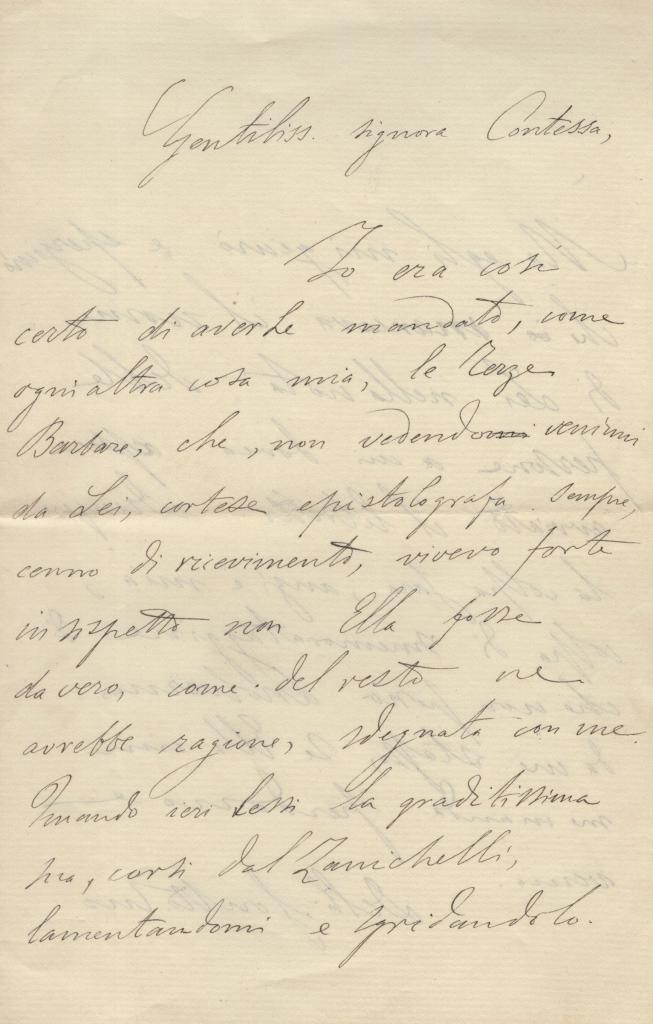 Gentiliss. signora Contessa,
Io era così
certo di averLe mandato, come
ogni altra cosa mia, le Terze
Barbare, che, non vedendo venirmi
da Lei, cortese epistolografa sempre,
cenno di ricevimento, vivevo forte
in sospetto non Ella fosse
davvero, come del resto ne
avrebbe ragione, sdegnata con me.
Quando ieri Lessi la graditissima
sua, corsi dal Zanichelli,
lamentandomi e sgridandolo.